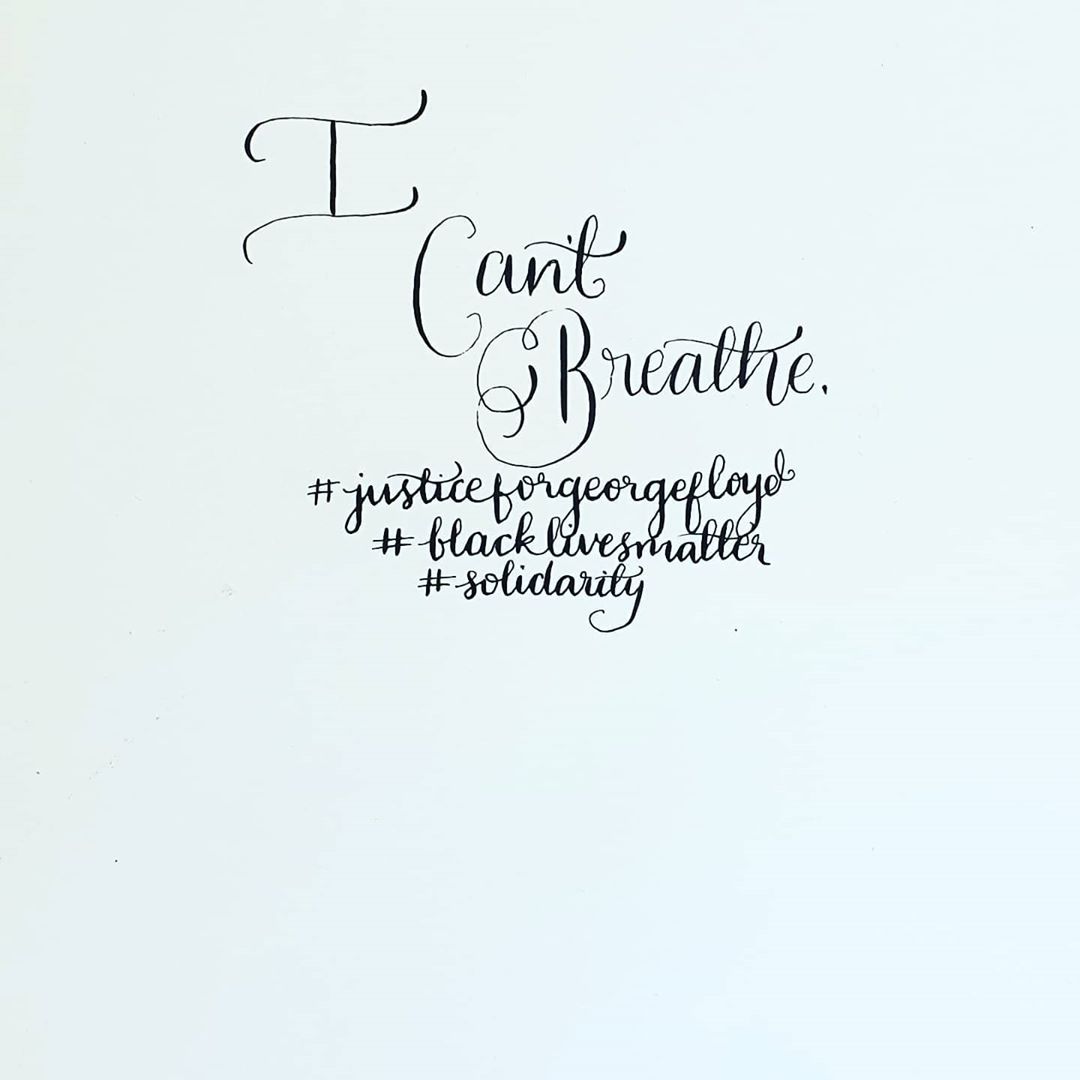 I
Can't
Breathe.
#justiceforgeorgefloyd
#blacklivesmatter
#solidarity